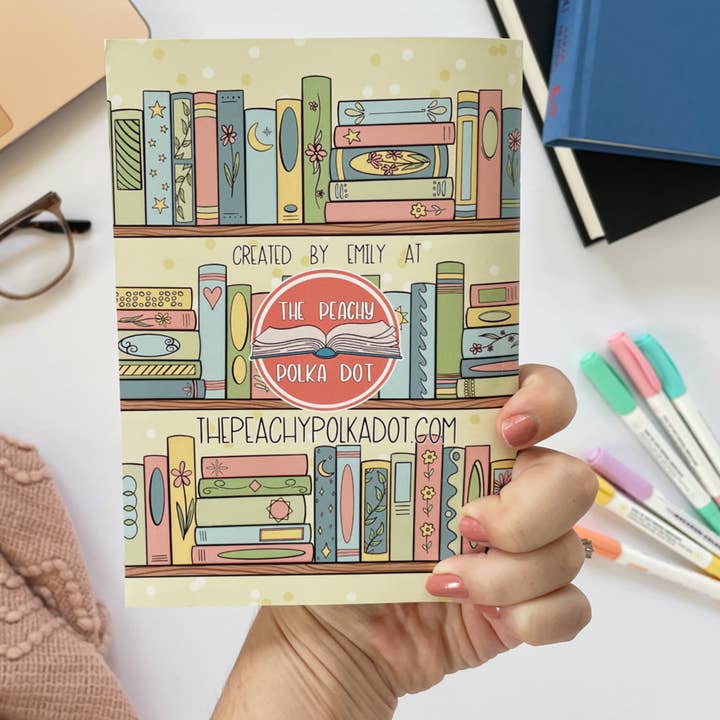 CREATED BY EMILY AT
THE PEACHY
POLKA DOT
THEPEACHYPOLKADOT.COM